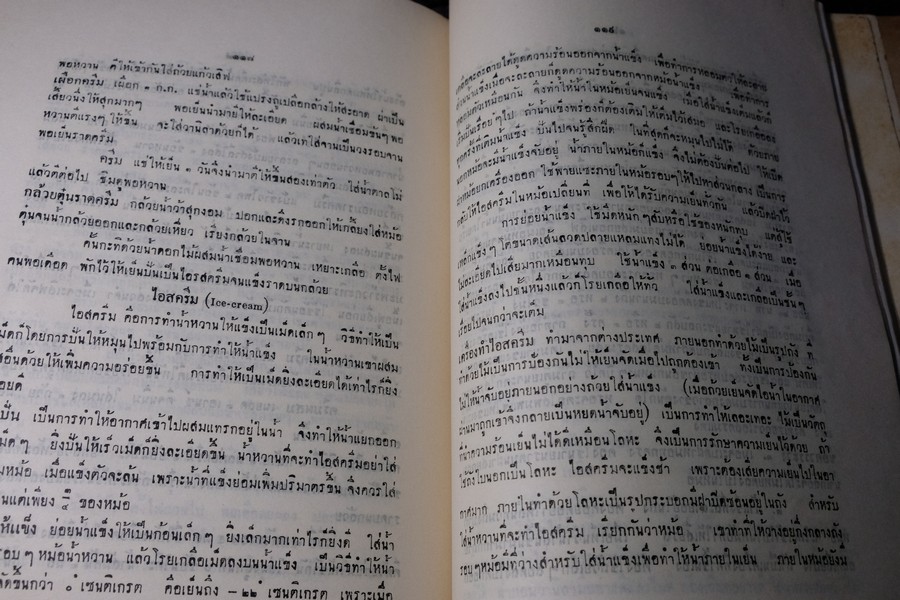 ๑๑๘
พอหวาน ตีให้เข้ากันใส่ถ้วยแก้วเสิฟ
เผือกครีม เผือก ๑ ก.ก. แช่น้ำแล้วใช้แปรงถูเปลือกล้างให้สะอาด ผ่าเป็น
เสี้ยวนึ่งให้สุกมากๆ พอเย็นนำมายีให้ละเอียด ผสมน้ำเชื่อมข้นๆ พอ
หวานตีแรงๆ ให้ขึ้น จะใส่วานิลาด้วยก็ได้ แล้วเทใส่จานเป็นวงรอบจาน
พอเย็นราดครีม
ครีม แช่ให้เย็น ๑ วันจึงนำมาตีให้ขึ้นสองเท่าตัว ใส่น้ำตาลไม่
แล้วตีต่อไป ชิมดูพอหวาน
กล้วยตุ๋นราดครีม กล้วยน้ำว้าสุกงอม ปอกและดึงรกออกให้เกลี้ยงใส่หม้อ
ตุ๋นจนน้ำกล้วยออกและกล้วยเหี่ยว เรียงกล้วยในจาน
คั้นกะทิด้วยน้ำดอกไม้ผสมน้ำเชื่อมพอหวาน เหยาะเกลือ ตั้งไฟ
คนพอเดือด พักไว้ให้เย็นปั่นเป็นไอสครีมจนแข็งราดบนกล้วย
ไอสครีม (Ice-cream)
ไอสครีม คือการทำน้ำหวานให้แข็งเป็นเม็ดเล็กๆ วิธีทำให้เป็น
เม็ดก็โดยการปั่นให้หมุนไปพร้อมกับการทำให้น้ำแข็ง ในน้ำหวานเขาผสม
สิ่งอื่นด้วยให้เพิ่มความอร่อยขึ้น การทำให้เป็นเม็ดยิ่งละเอียดได้เท่าไรก็ยิ่ง
อยดี
ปั่น เป็นการทำให้อากาศเข้าไปผสมแทรกอยู่ในน้ำ จึงทำให้น้ำแยกออก
เม็ดๆ ยิ่งปั่นให้เร็วเม็ดก็ยิ่งละเอียดขึ้น น้ำหวานที่จะทำไอสครีมอย่าใส่
มหม้อ เมื่อแข็งตัวจะล้น เพราะน้ำที่แข็งย่อมเพิ่มปริมาตรขึ้น จึงควรใส่
นแต่เพียง ๓/๔ ของหม้อ
ให้แข็ง ย่อยน้ำแข็งให้เป็นก้อนเล็กๆ ยิ่งเล็กมากเท่าไรก็ยิ่งดี ใส่น้ำ
รอบๆ หม้อน้ำหวาน แล้วโรยเกลือเม็ดลงบนน้ำแข็ง เป็นวิธีทำให้น้ำ
ขึ้นกว่า ๐ เซนติเกรด คือเย็นถึง -๒๒ เซนติเกรด เพราะเมื่อ
๑๑๙
เกลือจะละลายได้ดูดความร้อนออกจากน้ำแข็ง เพื่อทำการหลอมตัวให้ละลาย
ส่วนน้ำแข็งเมื่อจะละลายก็ดูดความร้อนออกจากหม้อน้ำแข็ง เพื่อทำการ
หลอมตัวเหมือนกัน จึงทำให้น้ำในหม้อเย็นจนแข็ง เมื่อใส่น้ำแข็งแล้ว
ปั่นเรื่อยๆ ไป ถ้าน้ำแข็งพร่องก็ต้องเติมให้เต็มไว้เสมอ และโรยเกลือลง
ทุกครั้งที่เติมน้ำแข็ง ปั่นไปจนรู้สึกฝืด ในที่สุดก็จะหมุนไปไม่ได้ ด้วยภาย
นอกหม้อคงมีน้ำแข็งจับอยู่ น้ำภายในหม้อก็แข็ง จึงไม่ต้องปั่นต่อไป ให้เปิด
ฝาหม้อยกเครื่องออก ใช้พายแซะภายในหม้อรอบๆ ให้ไปหาส่วนกลาง เป็นการ
กลับให้ไอสครีมในหม้อเปลี่ยนที่ เพื่อให้ได้รับความเย็นทั่วกัน แล้วปิดฝาไว้
การย่อยน้ำแข็ง ใช้มีดหนักๆ สับหรือใช้ของหนักทุบ แต่ถ้าใช้
เหล็กแข็งๆ โตขนาดเส้นลวดปลายแหลมแทงไม่ได้ ย่อยน้ำแข็งได้ง่าย และ
ไม่ละเอียดไปเสียมากเหมือนทุบ ใช้น้ำแข็ง ๓ ส่วน ต่อเกลือ ๑ ส่วน เมื่อ
ใส่น้ำแข็งลงไปชั้นหนึ่งแล้วก็โรยเกลือให้ทั่ว ใส่น้ำแข็งและเกลือเป็นชั้นๆ
เรื่อยไปจนกว่าจะเต็ม
เครื่องทำไอสครีม ทำมาจากต่างประเทศ ภายนอกทำด้วยไม้เป็นรูปถัง ที่
ทำด้วยไม้เป็นการป้องกันไม่ให้เย็นจัดเมื่อไปถูกต้องเข้า ทั้งเป็นการป้องกัน
ไม่ให้น้ำจับอยู่ภายนอกอย่างถ้วยใส่น้ำแข็ง (เมื่อถ้วยเย็นจัดไอน้ำในอากาศ
ผ่านมาถูกเข้าจึงกลายเป็นหยดน้ำจับอยู่) เป็นการทำให้เลอะเทอะ ไม้เป็นวัตถุ
นำความร้อนเย็นไม่ได้ดีเหมือนโลหะ จึงเป็นการรักษาความเย็นไว้ด้วย ถ้า
ใช้ถังไบนอกเป็นโลหะ ไอสครีมจะแข็งช้า เพราะต้องเสียความเย็นไปในอา
กาศมาก ภายในทำด้วยโลหะเป็นรูปกระบอกมีฝาปิดซ้อนอยู่ในถัง สำหรับ
ใส่น้ำหวานที่จะทำไอสครีม เรียกกันว่าหม้อ เขาทำที่ให้วางอยู่กึ่งกลางถังมี
รอบๆ หม้อมีที่ว่างสำหรับใส่น้ำแข็งเพื่อทำให้น้ำภายในเย็น ภายในหม้อยังมี